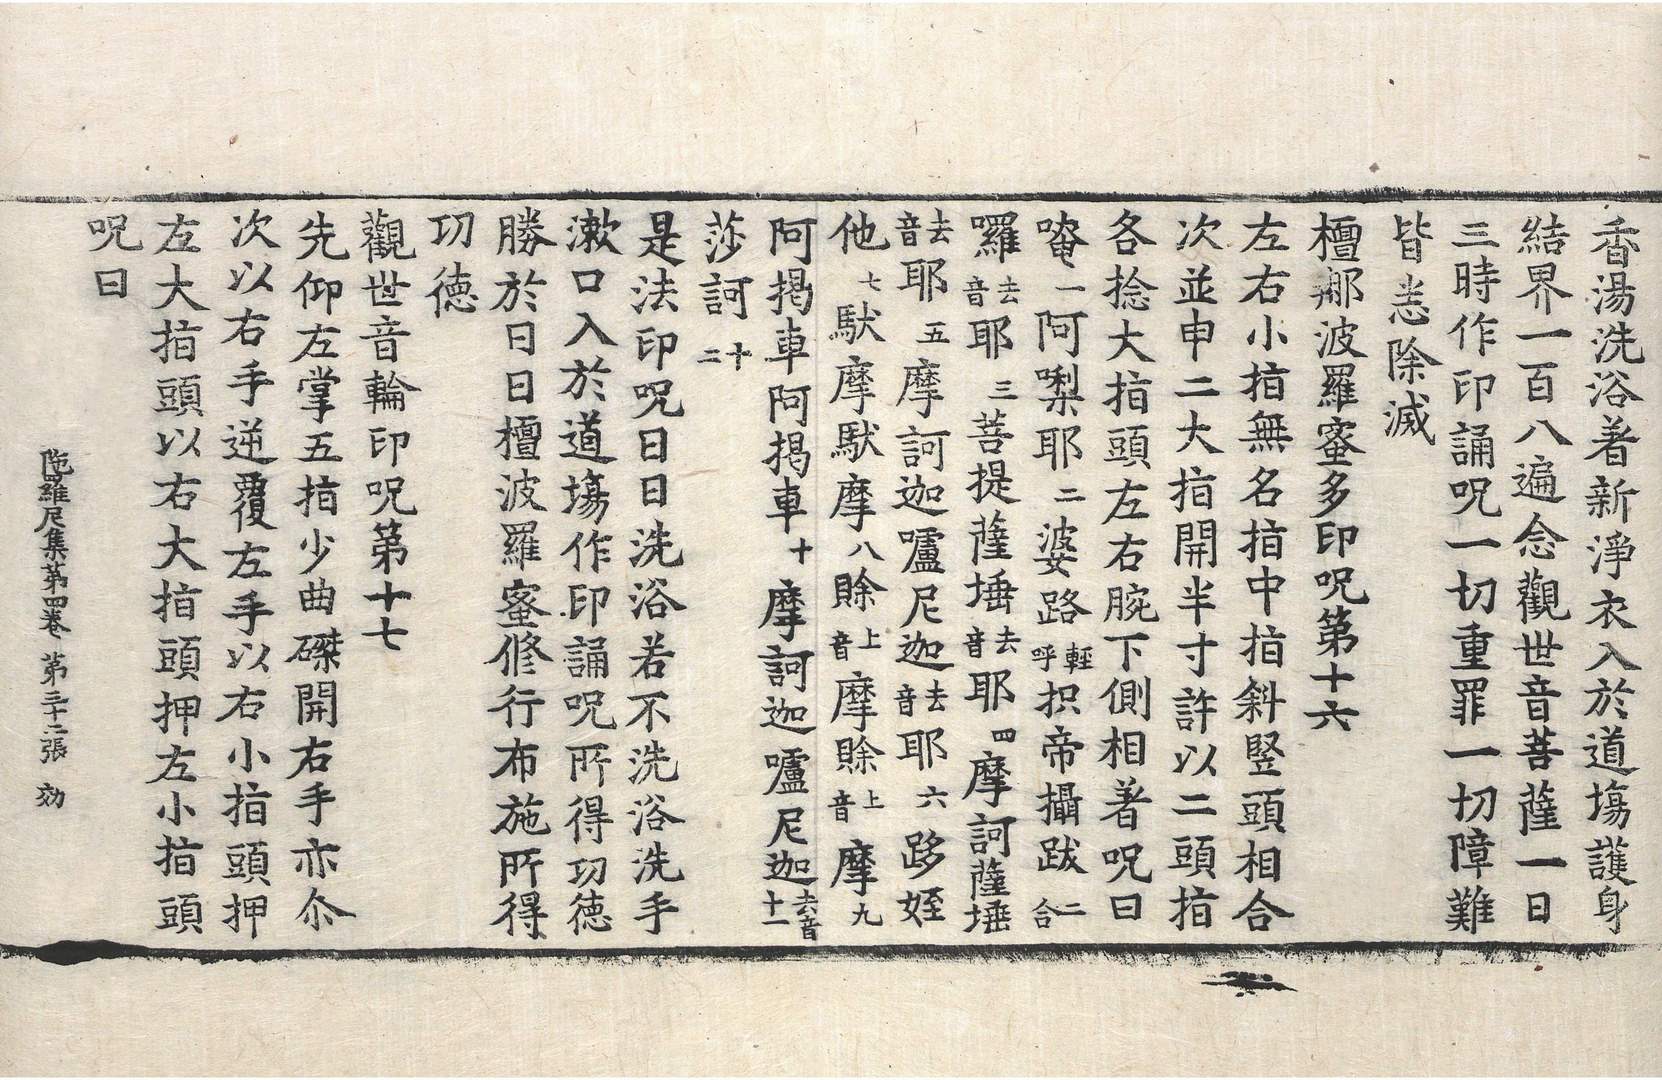 香湯洗浴著新淨衣入於道場護身
結界一百八遍念觀世音菩薩一日
三時作印誦呪一切重罪一切障難
皆悉除滅
檀那波羅蜜多印呪第十六
左右小指無名指中指斜竪頭相合
次並申二大指開半寸許以二頭指
各捻大指頭左右腕下側相著呪曰
唵一阿㗚耶二婆路輕呼抧帝攝跋二合
囉去音耶三菩提薩埵去音耶四摩訶薩埵
去音耶五摩訶迦嚧尼迦去音耶六跢姪
他七䭾摩䭾摩八賒上音摩賒上音摩九
阿揭車阿揭車十摩訶迦嚧尼迦去音十一
莎訶十二
是法印呪日日洗浴若不洗浴洗手
漱口入於道場作印誦呪所得功德
勝於日日檀波羅蜜修行布施所得
功德
觀世音輪印呪第十七
先仰左掌五指少曲磔開右手亦尒
次以右手逆覆左手以右小指頭押
左大指頭以右大指頭押左小指頭
呪曰
陁羅尼集第四卷 第三十二張 効